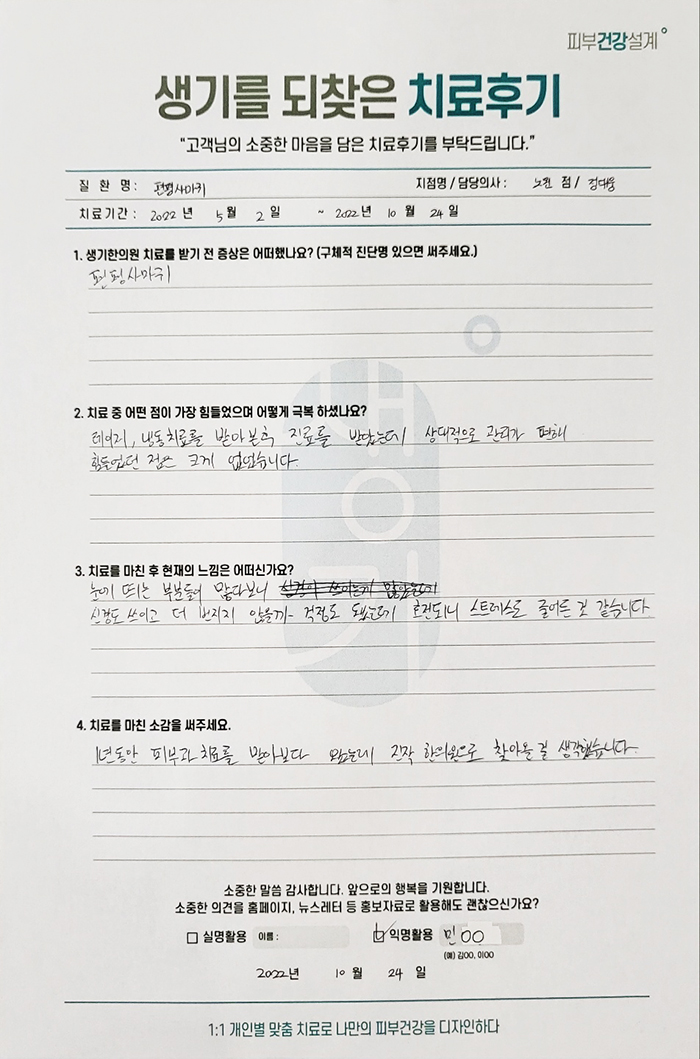 피부건강설계
생기를 되찾은 치료후기
"고객님의 소중한 마음을 담은 치료후기를 부탁드립니다."
질 환 명 : 편평사마귀 지점명 / 담당의사 : 노원 점 / 정대웅
치료기간 : 2022 년 5 월 2 일 ~ 2022 년 10 월 24 일
1. 생기한의원 치료를 받기 전 증상은 어떠했나요? (구체적 진단명 있으면 써주세요.)
편평사마귀
2. 치료 중 어떤 점이 가장 힘들었으며 어떻게 극복 하셨나요?
레이저, 냉동치료를 받아본 후 진료를 받았는데 상대적으로 관리가 편해
힘들었던 점은 크게 없었습니다.
3. 치료를 마친 후 현재의 느낌은 어떠신가요?
눈에 띄는 부분들이 많다보니
신경도 쓰이고 더 번지지 않을까 걱정도 됐는데 호전되니 스트레스도 줄어든 것 같습니다.
4. 치료를 마친 소감을 써주세요.
1년동안 피부과 치료를 받아보다 왔는데 진작 한의원으로 찾아올 걸 생각했습니다.
소중한 말씀 감사합니다. 앞으로의 행복을 기원합니다.
소중한 의견을 홈페이지, 뉴스레터 등 홍보자료로 활용해도 괜찮으신가요?
실명활용 이름 : 익명활용 민OO
(예) 김OO, 이OO
2022년 10 월 24 일
1:1 개인별 맞춤 치료로 나만의 피부건강을 디자인하다